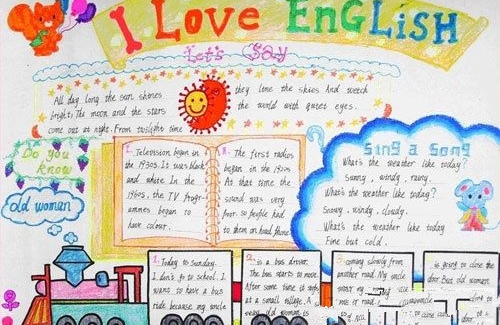 I Love ENGLISH
Let's Say
All day long the sun shines
bright. The moon and the stars
come out at night. From twilight time
they love the skies And watch
the world with quiet eyes.
Do you
know
old woman
1. Television began in
the 1930s. It was black
and white. In the
1960s, the TV Progr-
ammes began to
have colour.
The first radios
began in the 1920s
At that time the
sound was very
poor. so people had
to them on head phone
Sing a Song
What's the weather like today?
Sunny, windy, rainy.
What's the weather like today?
Snowy, windy, cloudy.
What's the weather like today
Fine but cold.
1. Today to Sunday.
I don't go to school. I
want to have a bus
ride because my uncle
2. is a bus driver.
The bus starts to move
After some time it stops
at a small village. A
old woman is
coming slowly from
another road. My uncle
is going to close the
door. But old woman